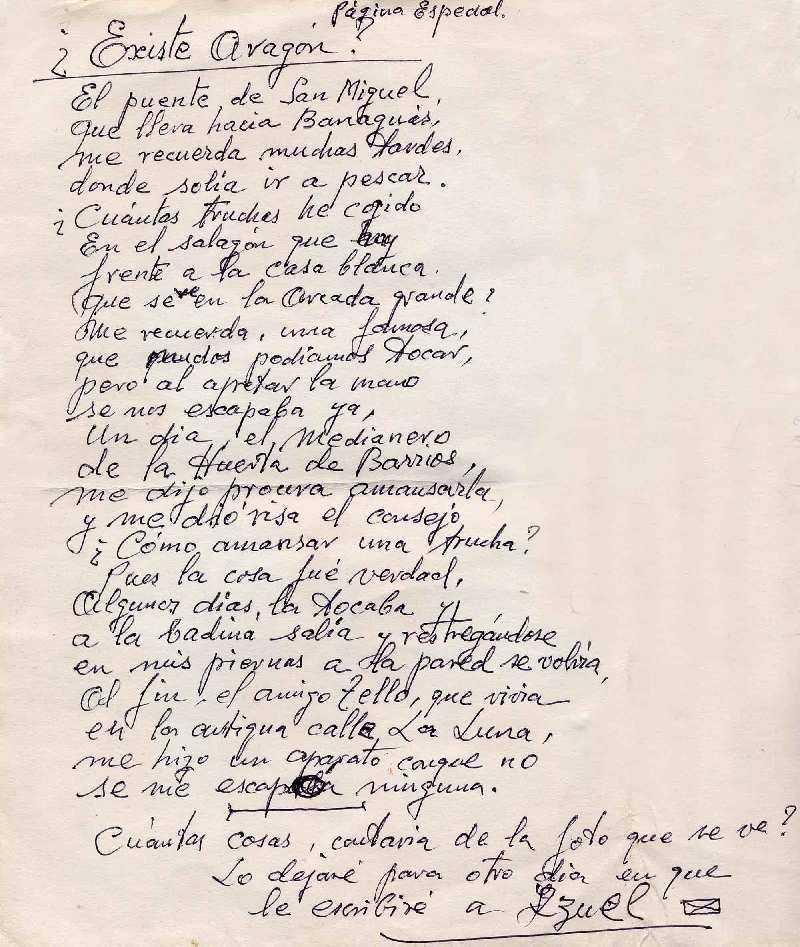 Página Especial.
¿Existe Aragón?
El puente de San Miguel,
que lleva hacia Banaguás,
me recuerda muchas tardes,
donde solía ir a pescar.
¿Cuántas truchas he cogido
En el salagón que hay
frente a la casa blanca.
que se ve en la Arcada grande?
Me recuerda, una famosa,
que podíamos tocar,
pero al apretar la mano
se nos escapaba ya,
Un dia, el Medianero
de la Huerta de Barrios,
me dijo procura amansarla,
y me dió risa el consejo
¿Cómo amansar una trucha?
Pues la cosa fué verdad,
Algunos dias, la tocaba y
a la badina salia y restregándose
en mis piernas a la pared se volvia,
Al fin, el amigo Tello, que vivia
en la antigua calle La Luna,
me hizo un aparato conque no
se me escapaba ninguna.
Cuántas cosas, contaria de la foto que se ve?
Lo dejaré para otro dia en que
le escribiré a Izuel